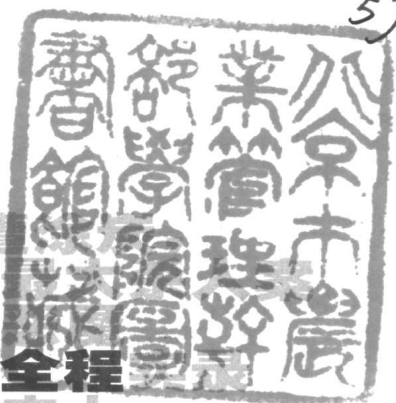 北京市農
業管理幹
部學院圖
書館藏
全程